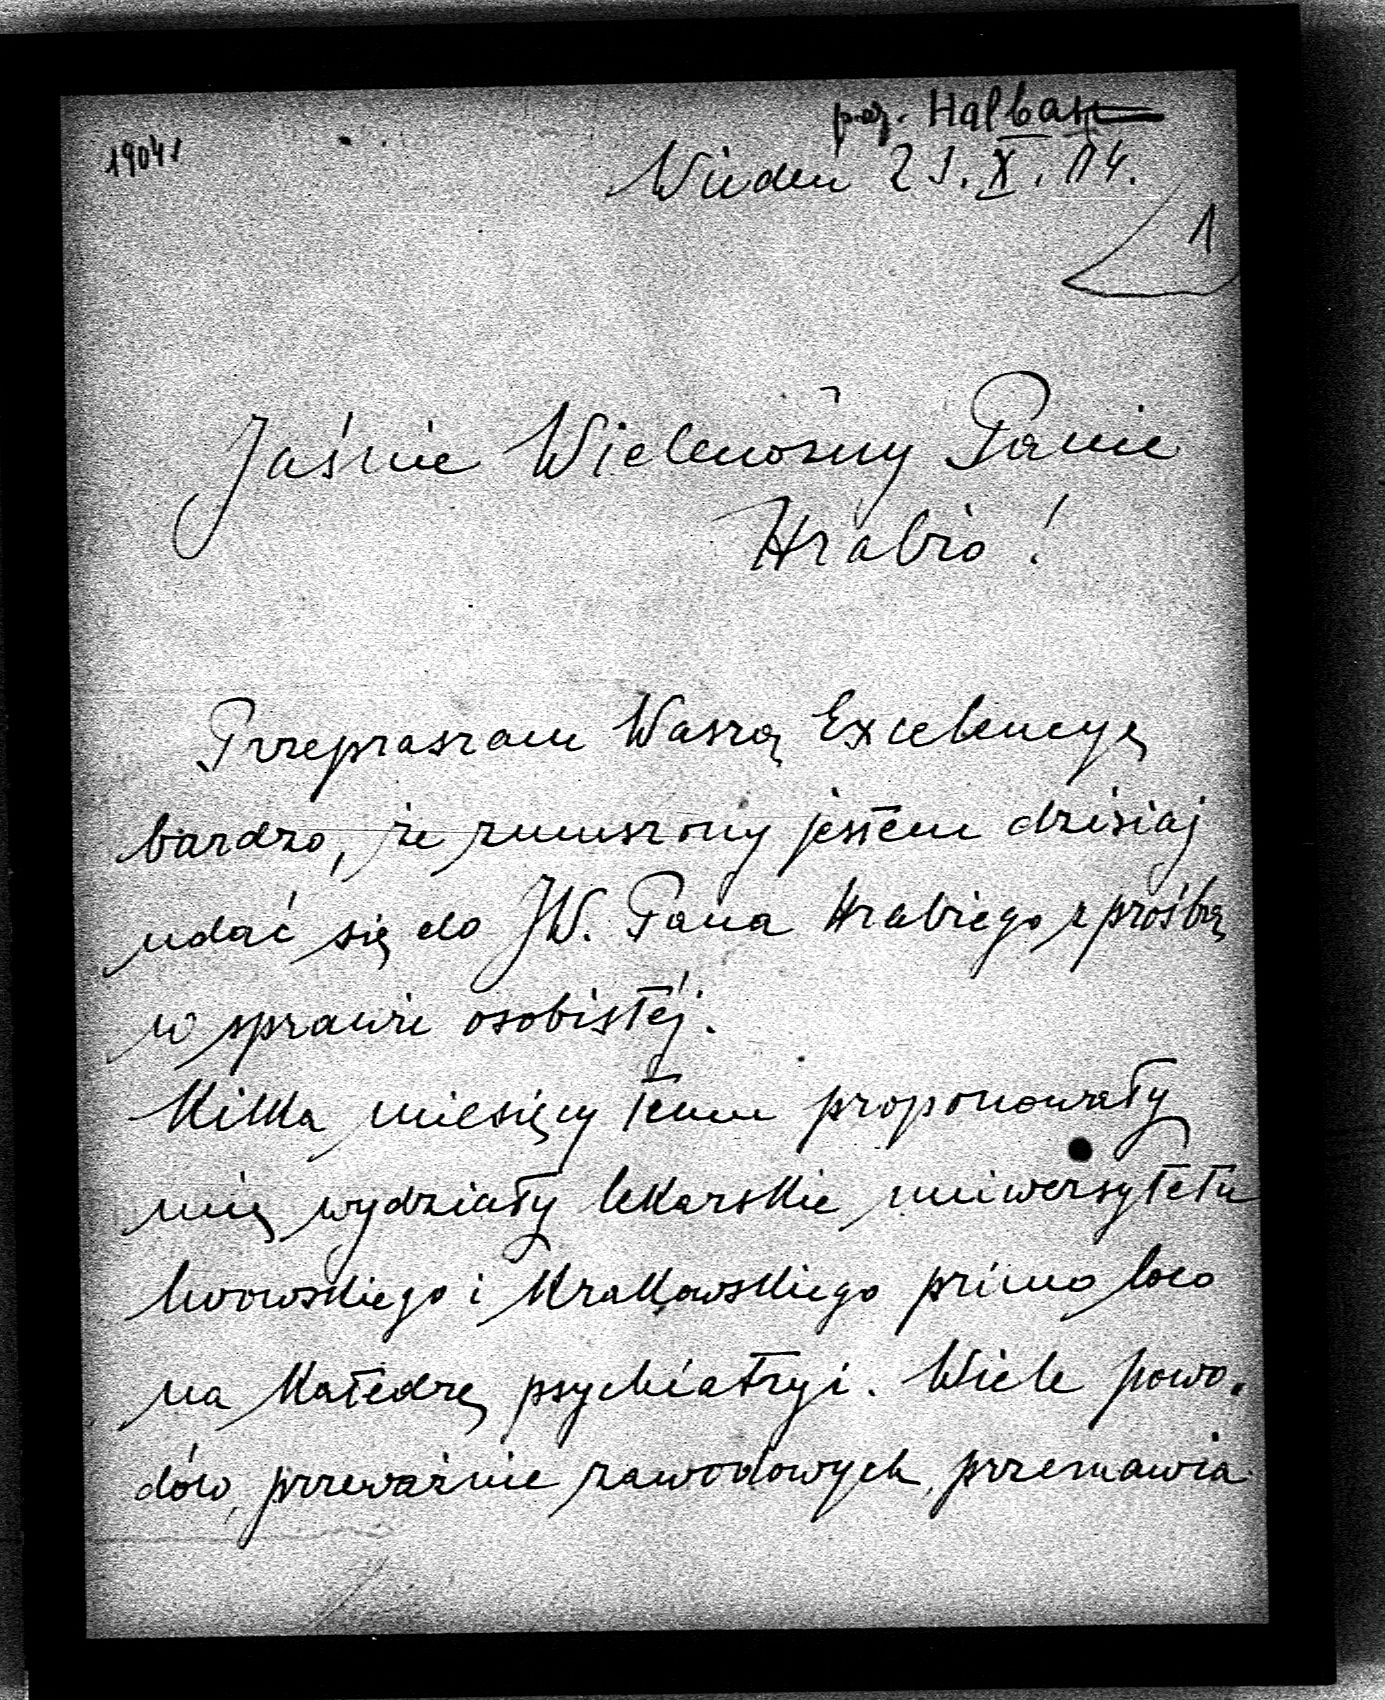 Halban
1904
Wiedeń 23. X. 04.
1
Jaśnie Wielmożny Panie
Hrabio!
Przepraszam Waszą Excelencyę
bardzo, że zmuszony jestem dzisiaj
udać się do JW. Pana Hrabiego z prośbą
w sprawie osobistéj.
Kilka miesięcy temu proponowały
mię wydziały lekarskie uniwersytetu
lwowskiego i Krakowskiego primo loco
na Katedrę psychiatryi. Wiele powo-
dów, przeważnie zawodowych, przemawia